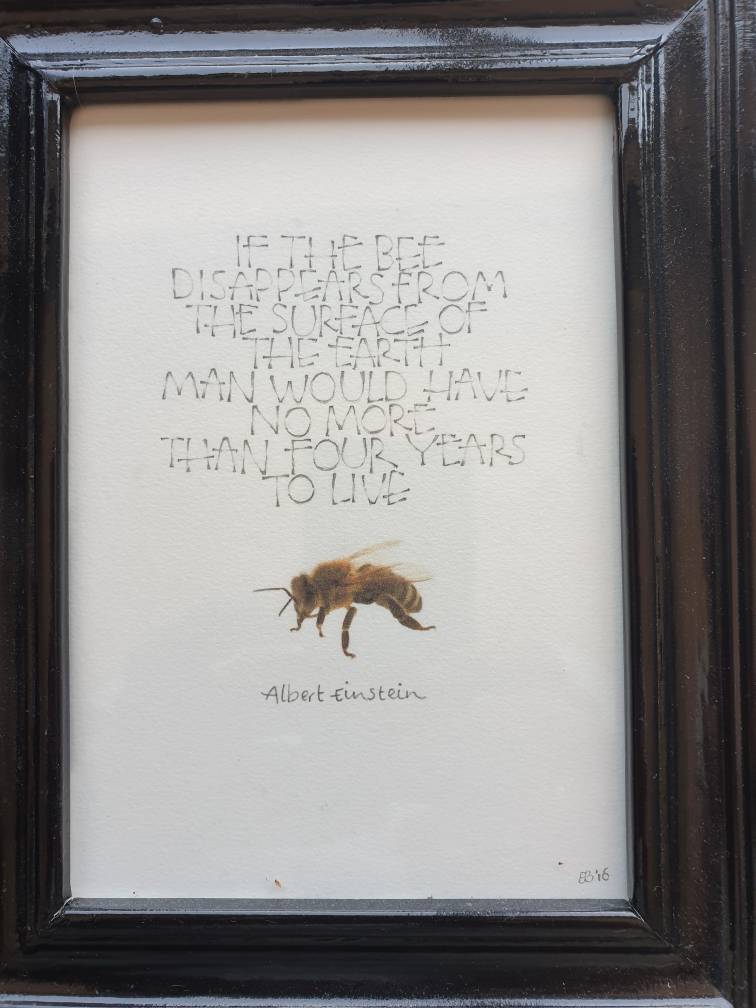 IF THE BEE
DISAPPEARS FROM
THE SURFACE OF
THE EARTH
MAN WOULD HAVE
NO MORE
THAN FOUR YEARS
TO LIVE
Albert Einstein
EB'16